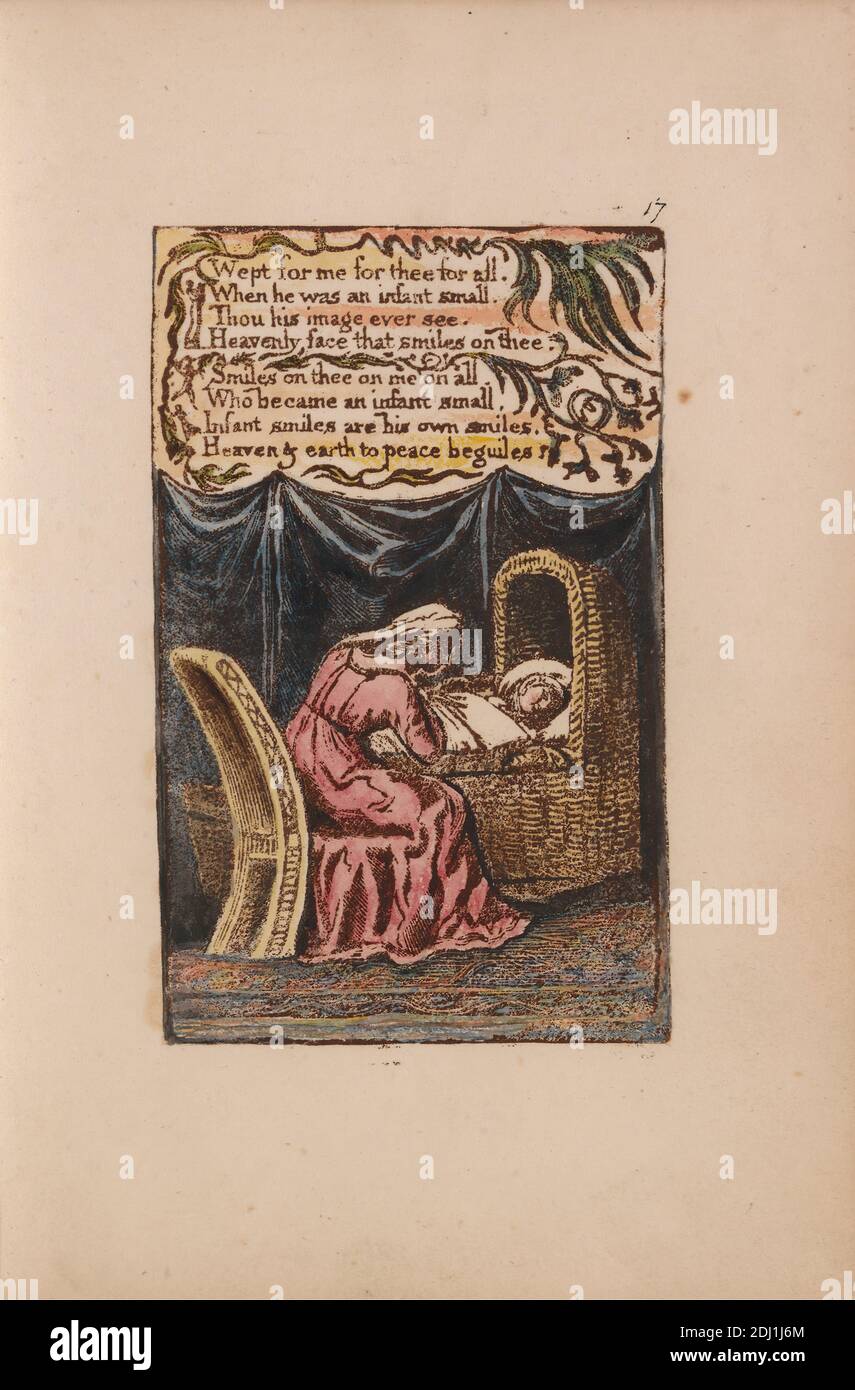 17
Wept for me for thee for all.
When he was an infant small.
Thou his image ever see.
Heavenly face that smiles on thee.
Smiles on thee on me on all.
Who became an infant small.
Infant smiles are his own smiles.
Heaven & earth to peace beguiles
alamy
Image ID: 2DJ1J6M
www.alamy.com